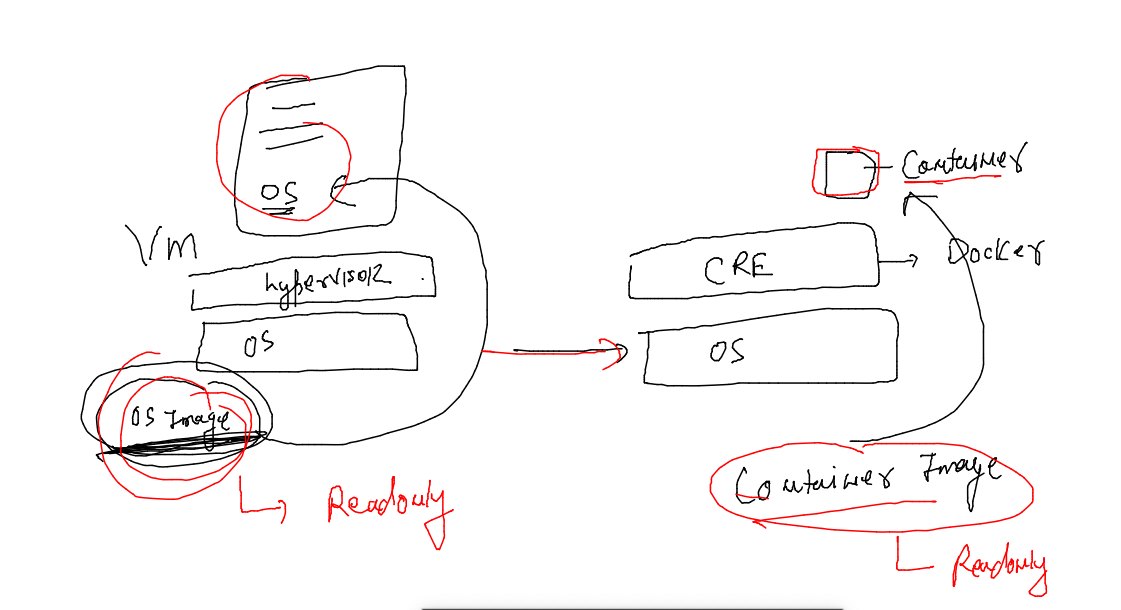 OS
VM
hypervisor
OS
OS Image
Readonly
Container
CRE
Docker
OS
Container Image
Readonly